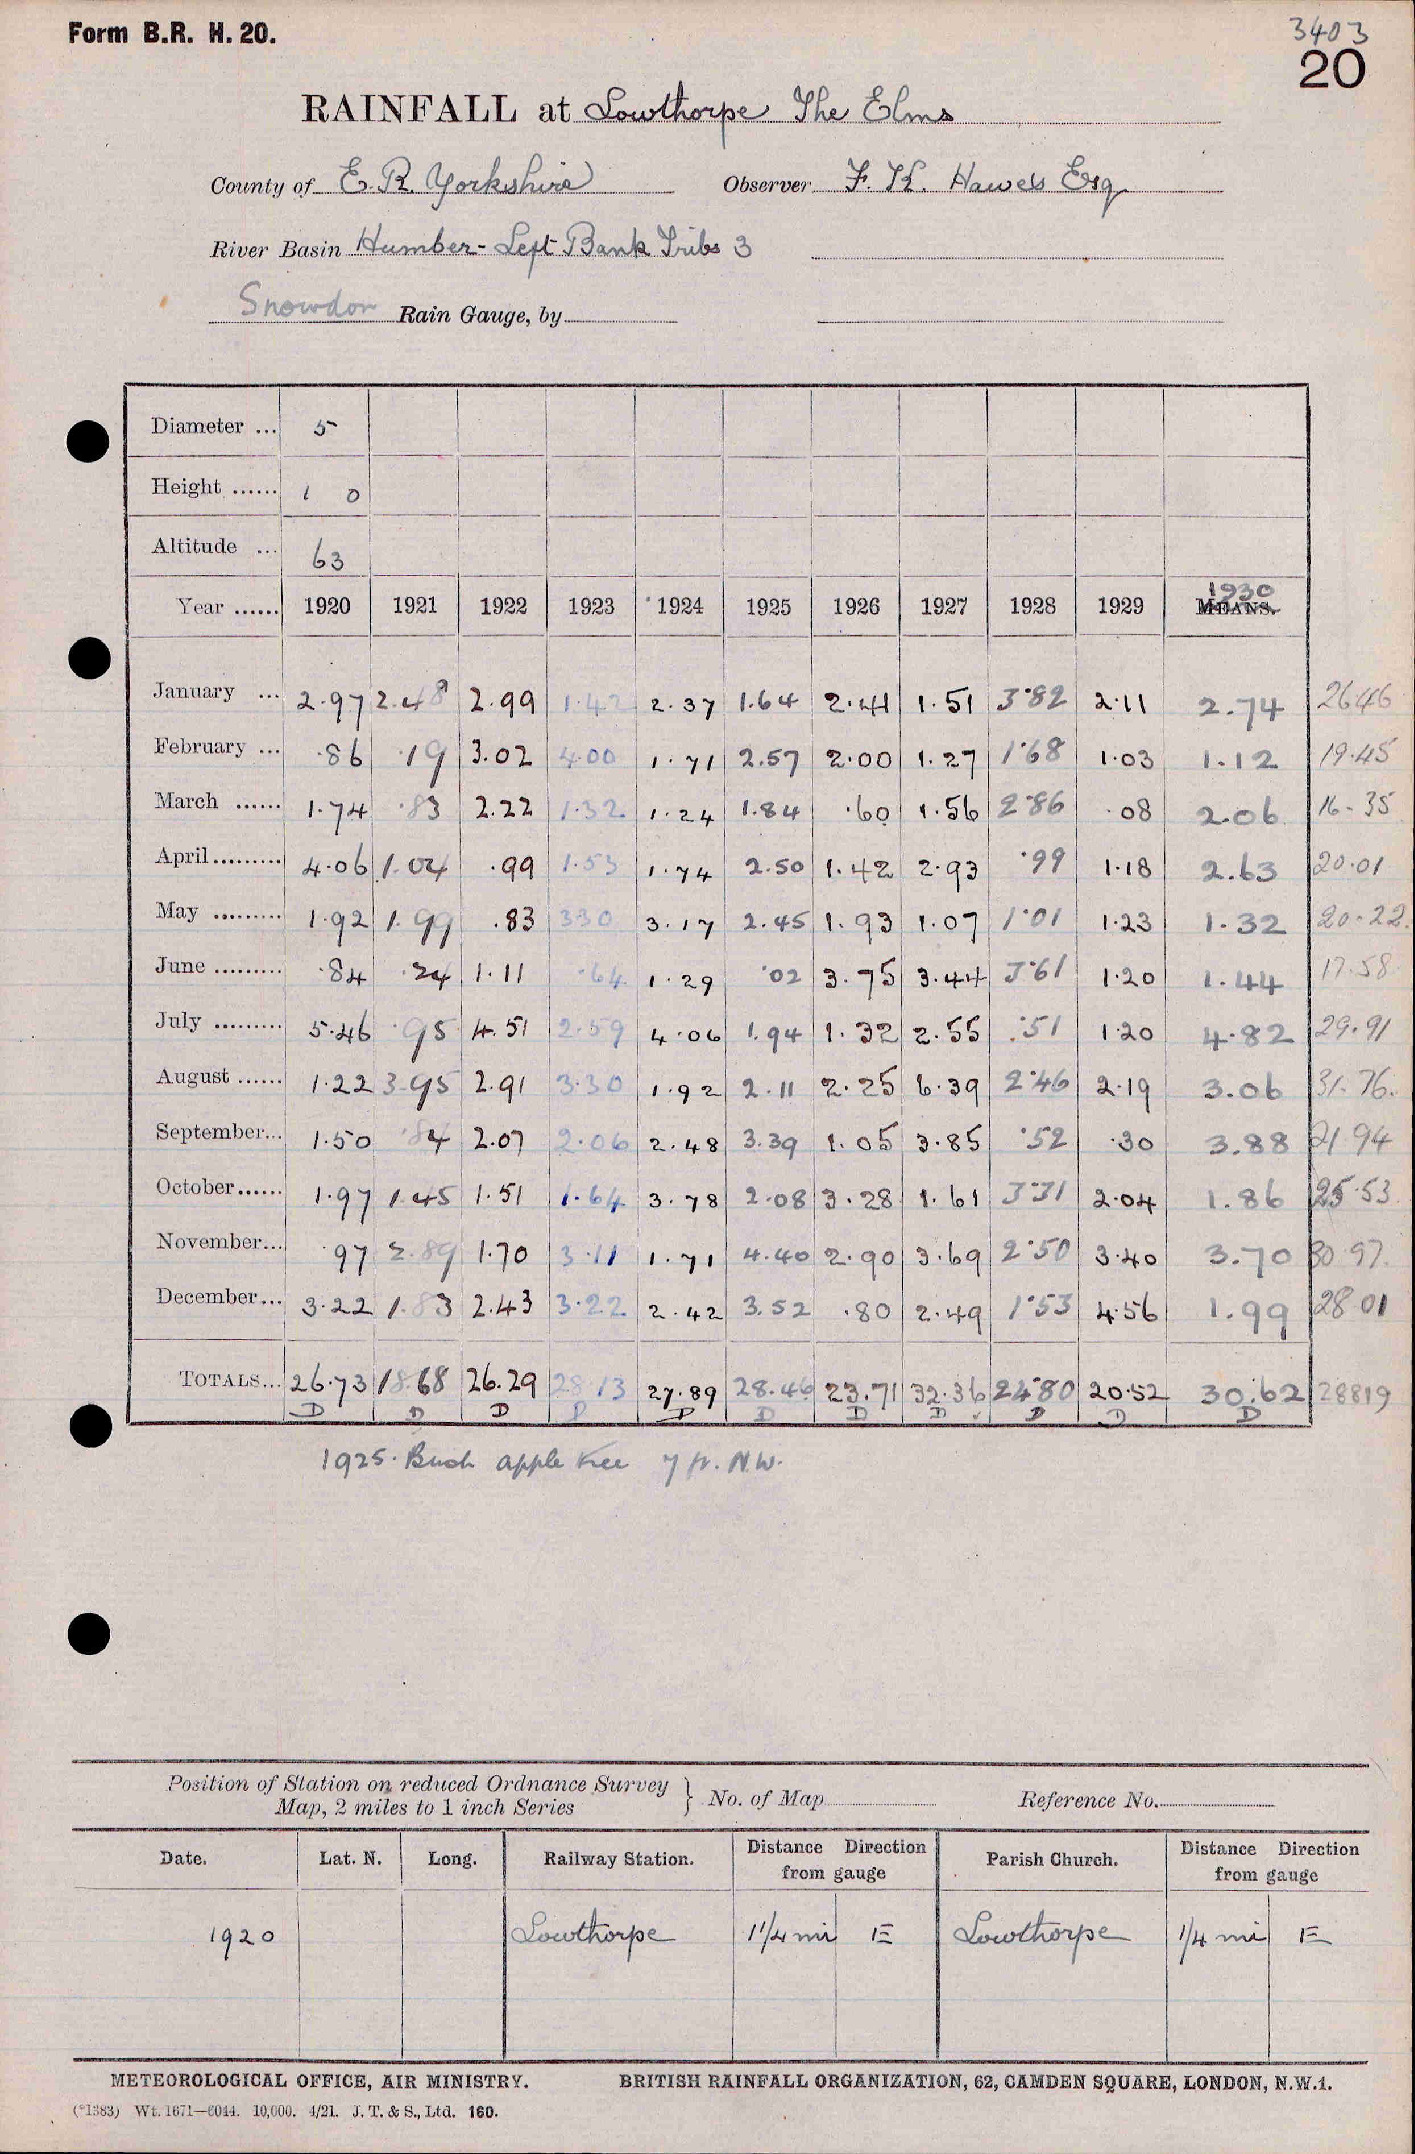 Form B.R. H. 20.
3403
20
RAINFALL at Lowthorpe The Elms
County of E. R. Yorkshire Observer F. K. Hawes Esq
River Basin Humber - Left Bank Tribs 3
Snowdon Rain Gauge, by
Diameter ... 5
Height ...... 1 0
Altitude ... 63
Year ...... 1920 1921 1922 1923 1924 1925 1926 1927 1928 1929 MEANS. 1930
January ... 2.97 2.48 2.99 1.42 2.37 1.64 2.41 1.51 3.82 2.11 2.74 26.46
February ... .86 .19 3.02 4.00 1.71 2.57 2.00 1.27 1.68 1.03 1.12 19.45
March ...... 1.74 .83 2.22 1.32 1.24 1.84 .60 1.56 2.86 .08 2.06 16.35
April......... 4.06 1.04 .99 1.53 1.74 2.50 1.42 2.93 .99 1.18 2.63 20.01
May ......... 1.92 1.99 .83 3.30 3.17 2.45 1.93 1.07 1.01 1.23 1.32 20.22
June ......... .84 .24 1.11 .64 1.29 .02 3.75 3.44 3.61 1.20 1.44 17.58
July ......... 5.46 .95 4.51 2.59 4.06 1.94 1.32 2.55 .51 1.20 4.82 29.91
August ...... 1.22 3.95 2.91 3.30 1.92 2.11 2.25 6.39 2.46 2.19 3.06 31.76
September... 1.50 .84 2.07 2.06 2.48 3.39 1.05 3.85 .52 .30 3.88 21.94
October...... 1.97 1.45 1.51 1.64 3.78 2.08 3.28 1.61 3.31 2.04 1.86 25.53
November... .97 2.89 1.70 3.11 1.71 4.40 2.90 3.69 2.50 3.40 3.70 30.97
December... 3.22 1.83 2.43 3.22 2.42 3.52 .80 2.49 1.53 4.56 1.99 28.01
TOTALS... 26.73 18.68 26.29 28.13 27.89 28.46 23.71 32.36 24.80 20.52 30.62 28819
D D D D D D D D D D D
1925. Bush apple tree 7 ft. N.W.
Position of Station on reduced Ordnance Survey
Map, 2 miles to 1 inch Series } No. of Map Reference No.
Date. Lat. N. Long. Railway Station. Distance Direction from gauge Parish Church. Distance Direction from gauge
1920 Lowthorpe 1 1/4 mi E Lowthorpe 1/4 mi E
METEOROLOGICAL OFFICE, AIR MINISTRY. BRITISH RAINFALL ORGANIZATION, 62, CAMDEN SQUARE, LONDON, N.W.1.
(*1383) Wt. 1671—6044. 10,000. 4/21. J. T. & S., Ltd. 160.